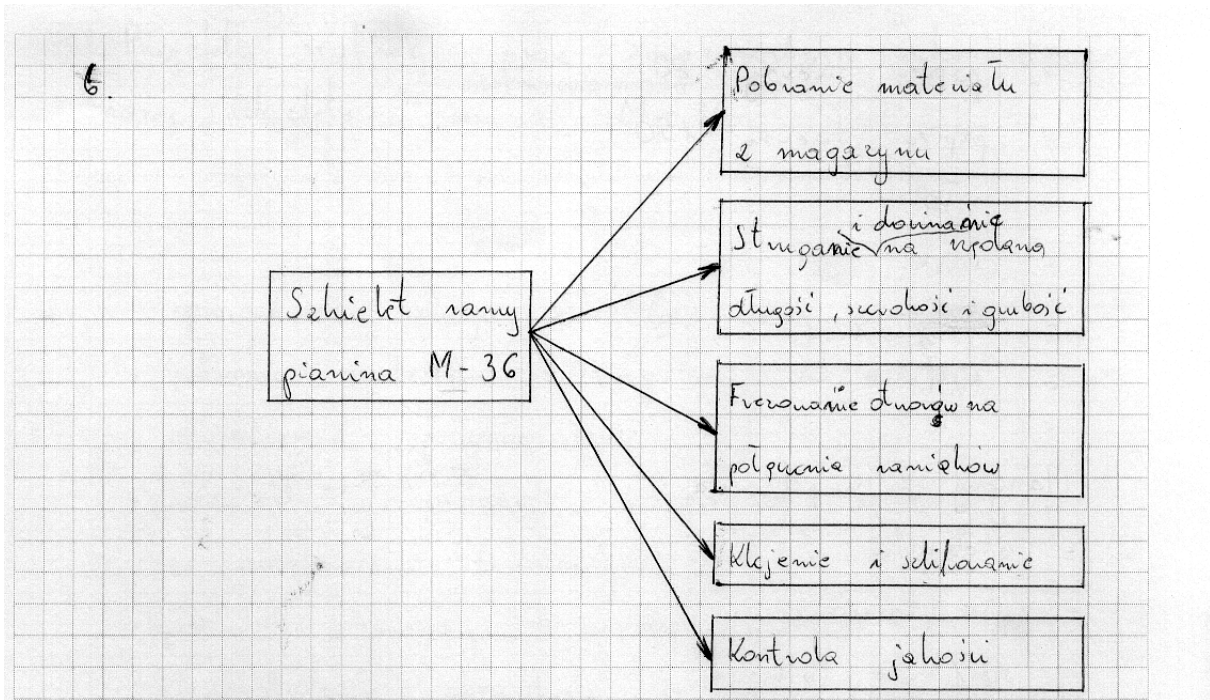 6.
Szkielet ramy
pianina M-36
Pobranie materiału
z magazynu
i docinanie
Struganie na żądaną
długość, szerokość i grubość
Frezowanie otworów na
połączenia ramiaków
Klejenie i szlifowanie
Kontrola jakości